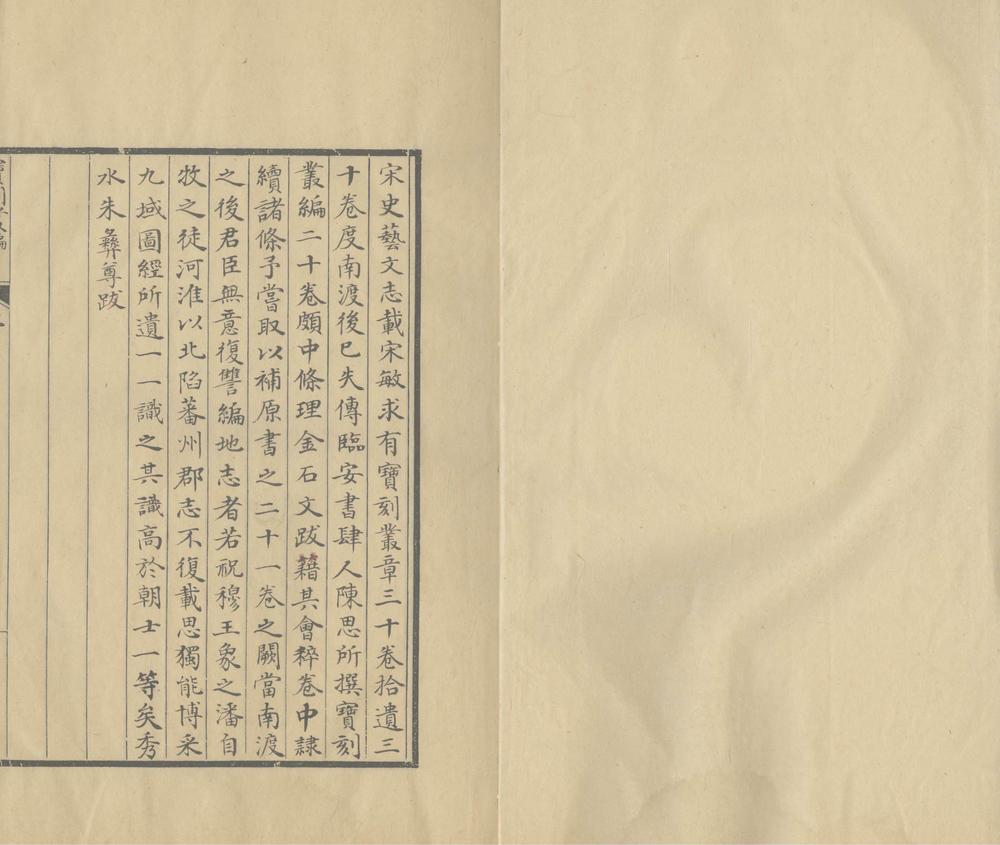 宋史藝文志載宋敏求有寶刻叢章三十卷拾遺三
十卷度南渡後已失傳臨安書肆人陳思所撰寶刻
叢編二十卷頗中條理金石文跋籍其會稡卷中隷
續諸條予嘗取以補原書之二十一卷之闕當南渡
之後君臣無意復讐編地志者若祝穆王象之潘自
牧之徒河淮以北陷蕃州郡志不復載思獨能博采
九域圖經所遺一一識之其識高於朝士一等矣秀
水朱彝尊跋